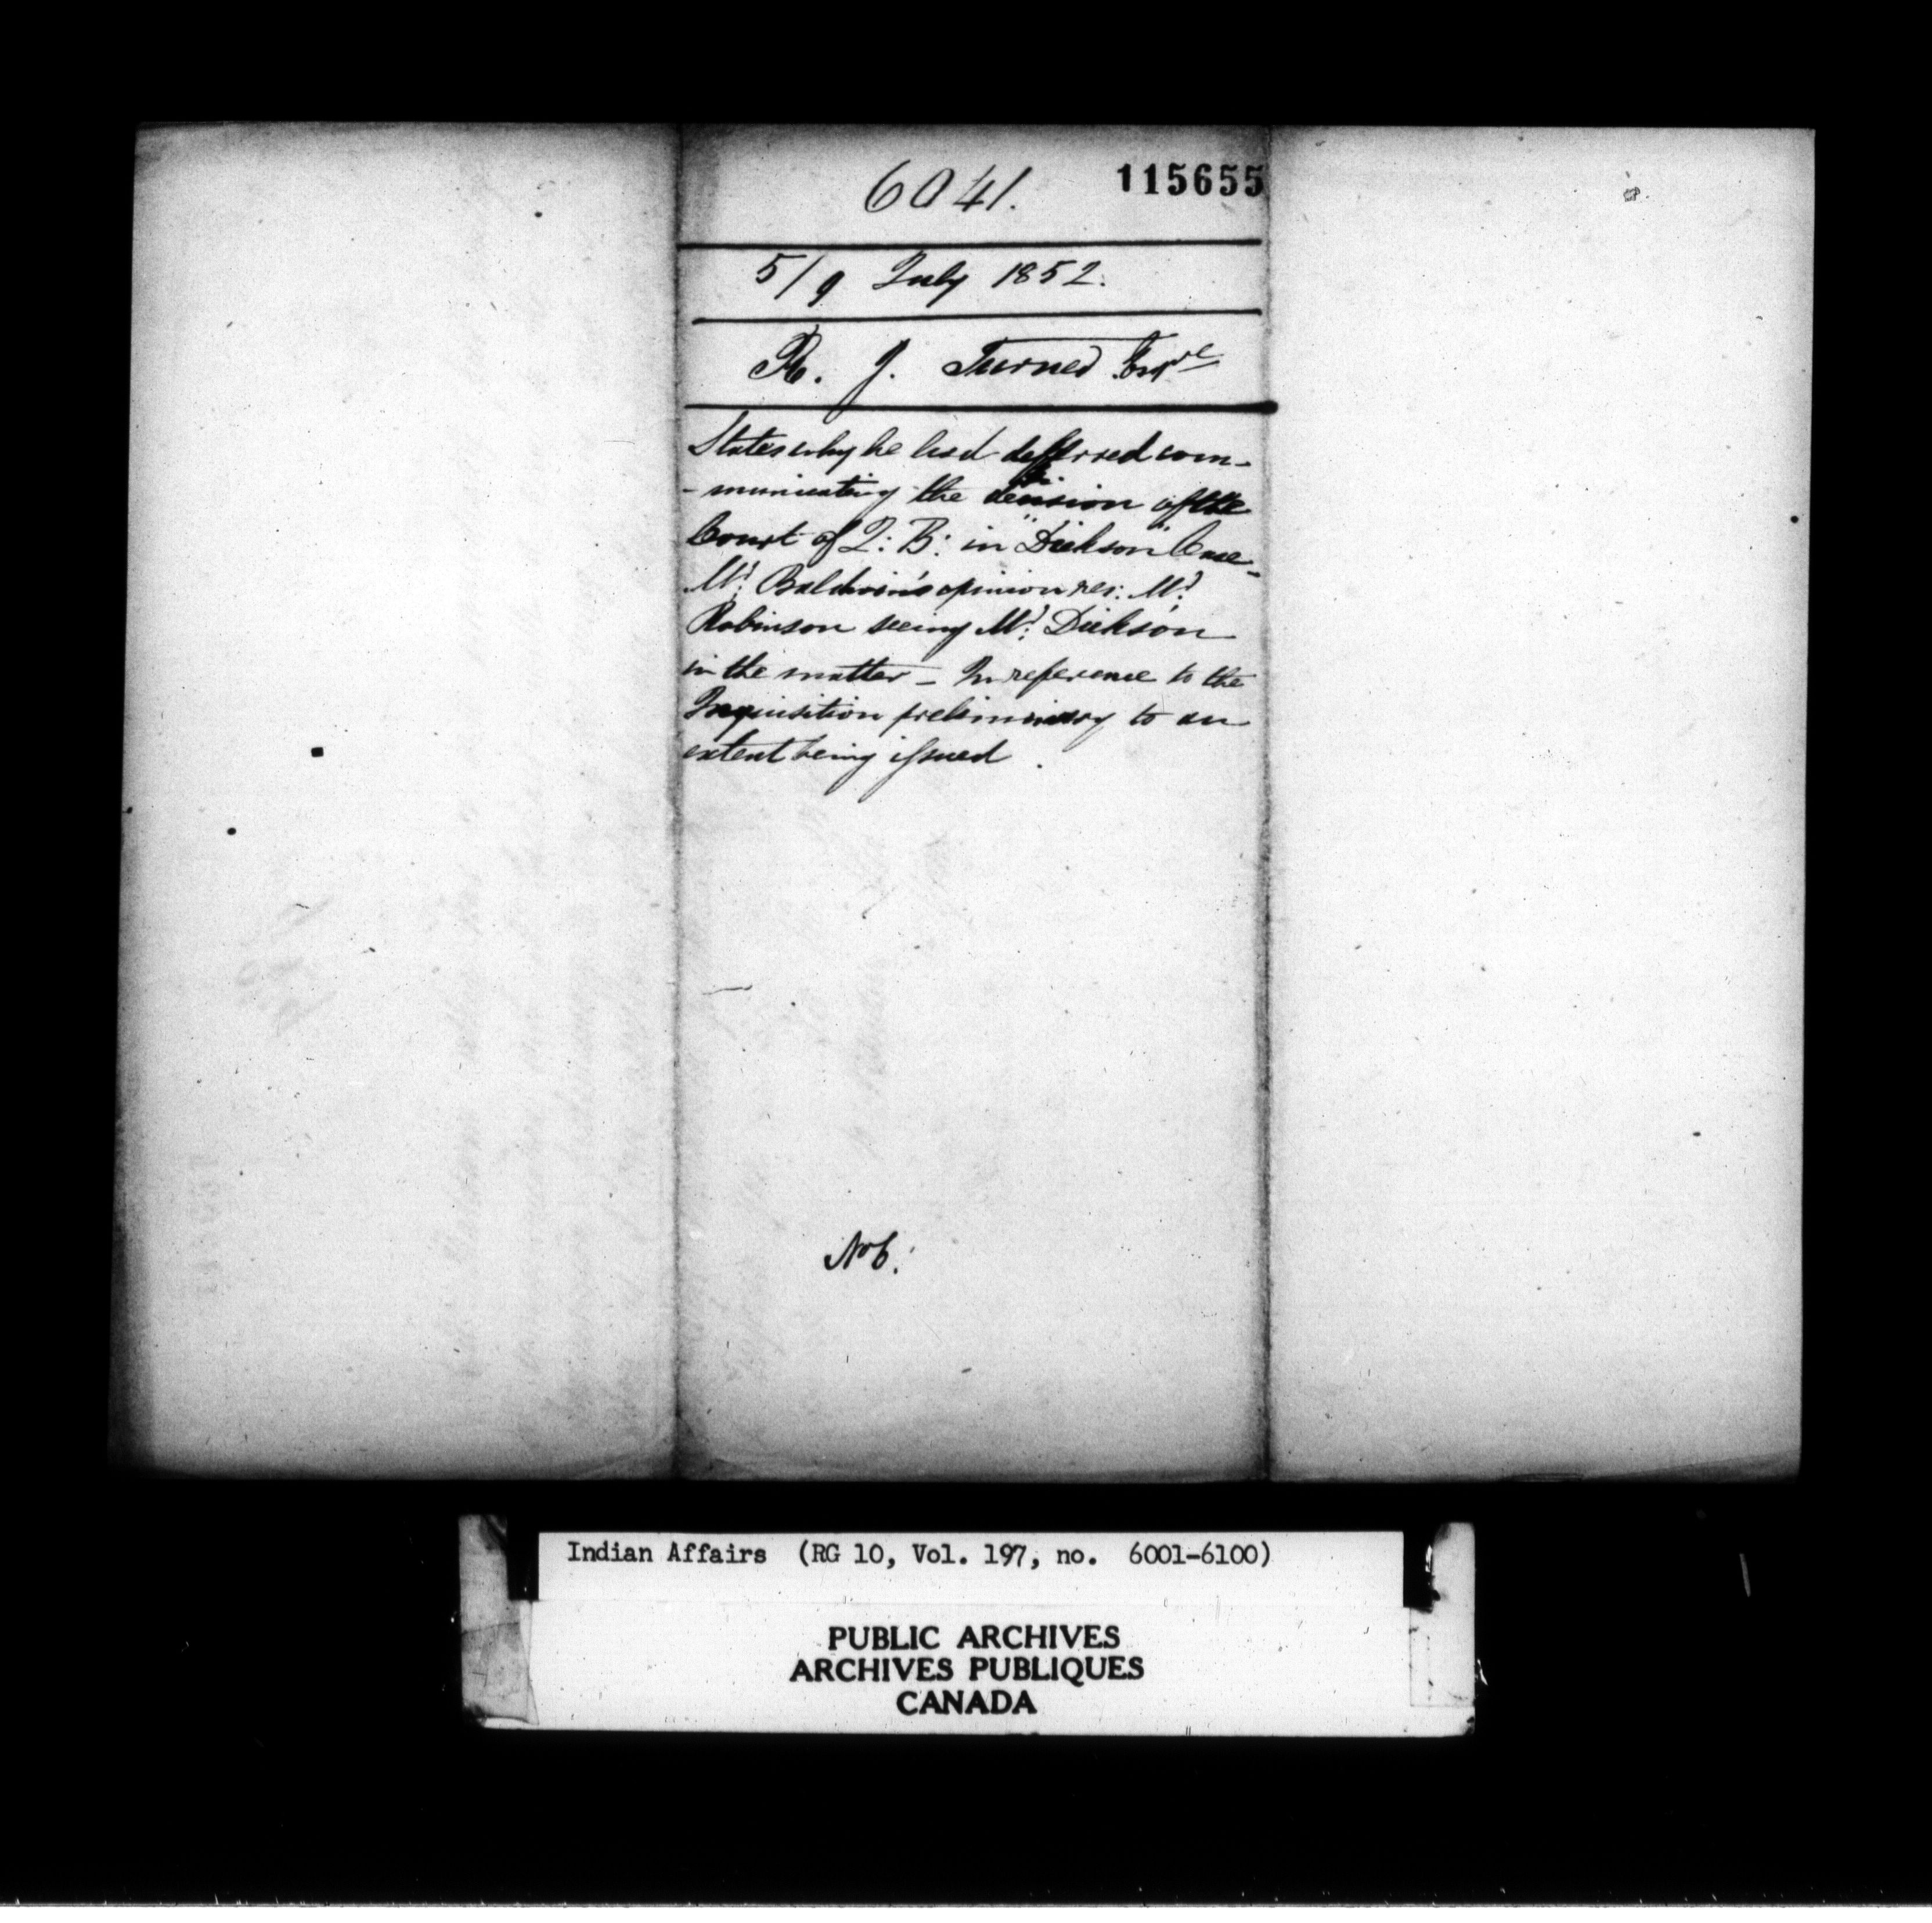 6041.
115655
5/9 July 1852.
R. J. Turner Esqre
States why he had deferred com-
-municating the decision of the
Court of Q: B: in "Dickson" Case-
Mr. Baldwin's opinion res: Mr.
Robinson seeing Mr. Dickson
in the matter - In reference to the
Inquisition preliminary to an
extent being issued.
No 6.
Indian Affairs (RG 10, Vol. 197, no. 6001-6100)
PUBLIC ARCHIVES
ARCHIVES PUBLIQUES
CANADA